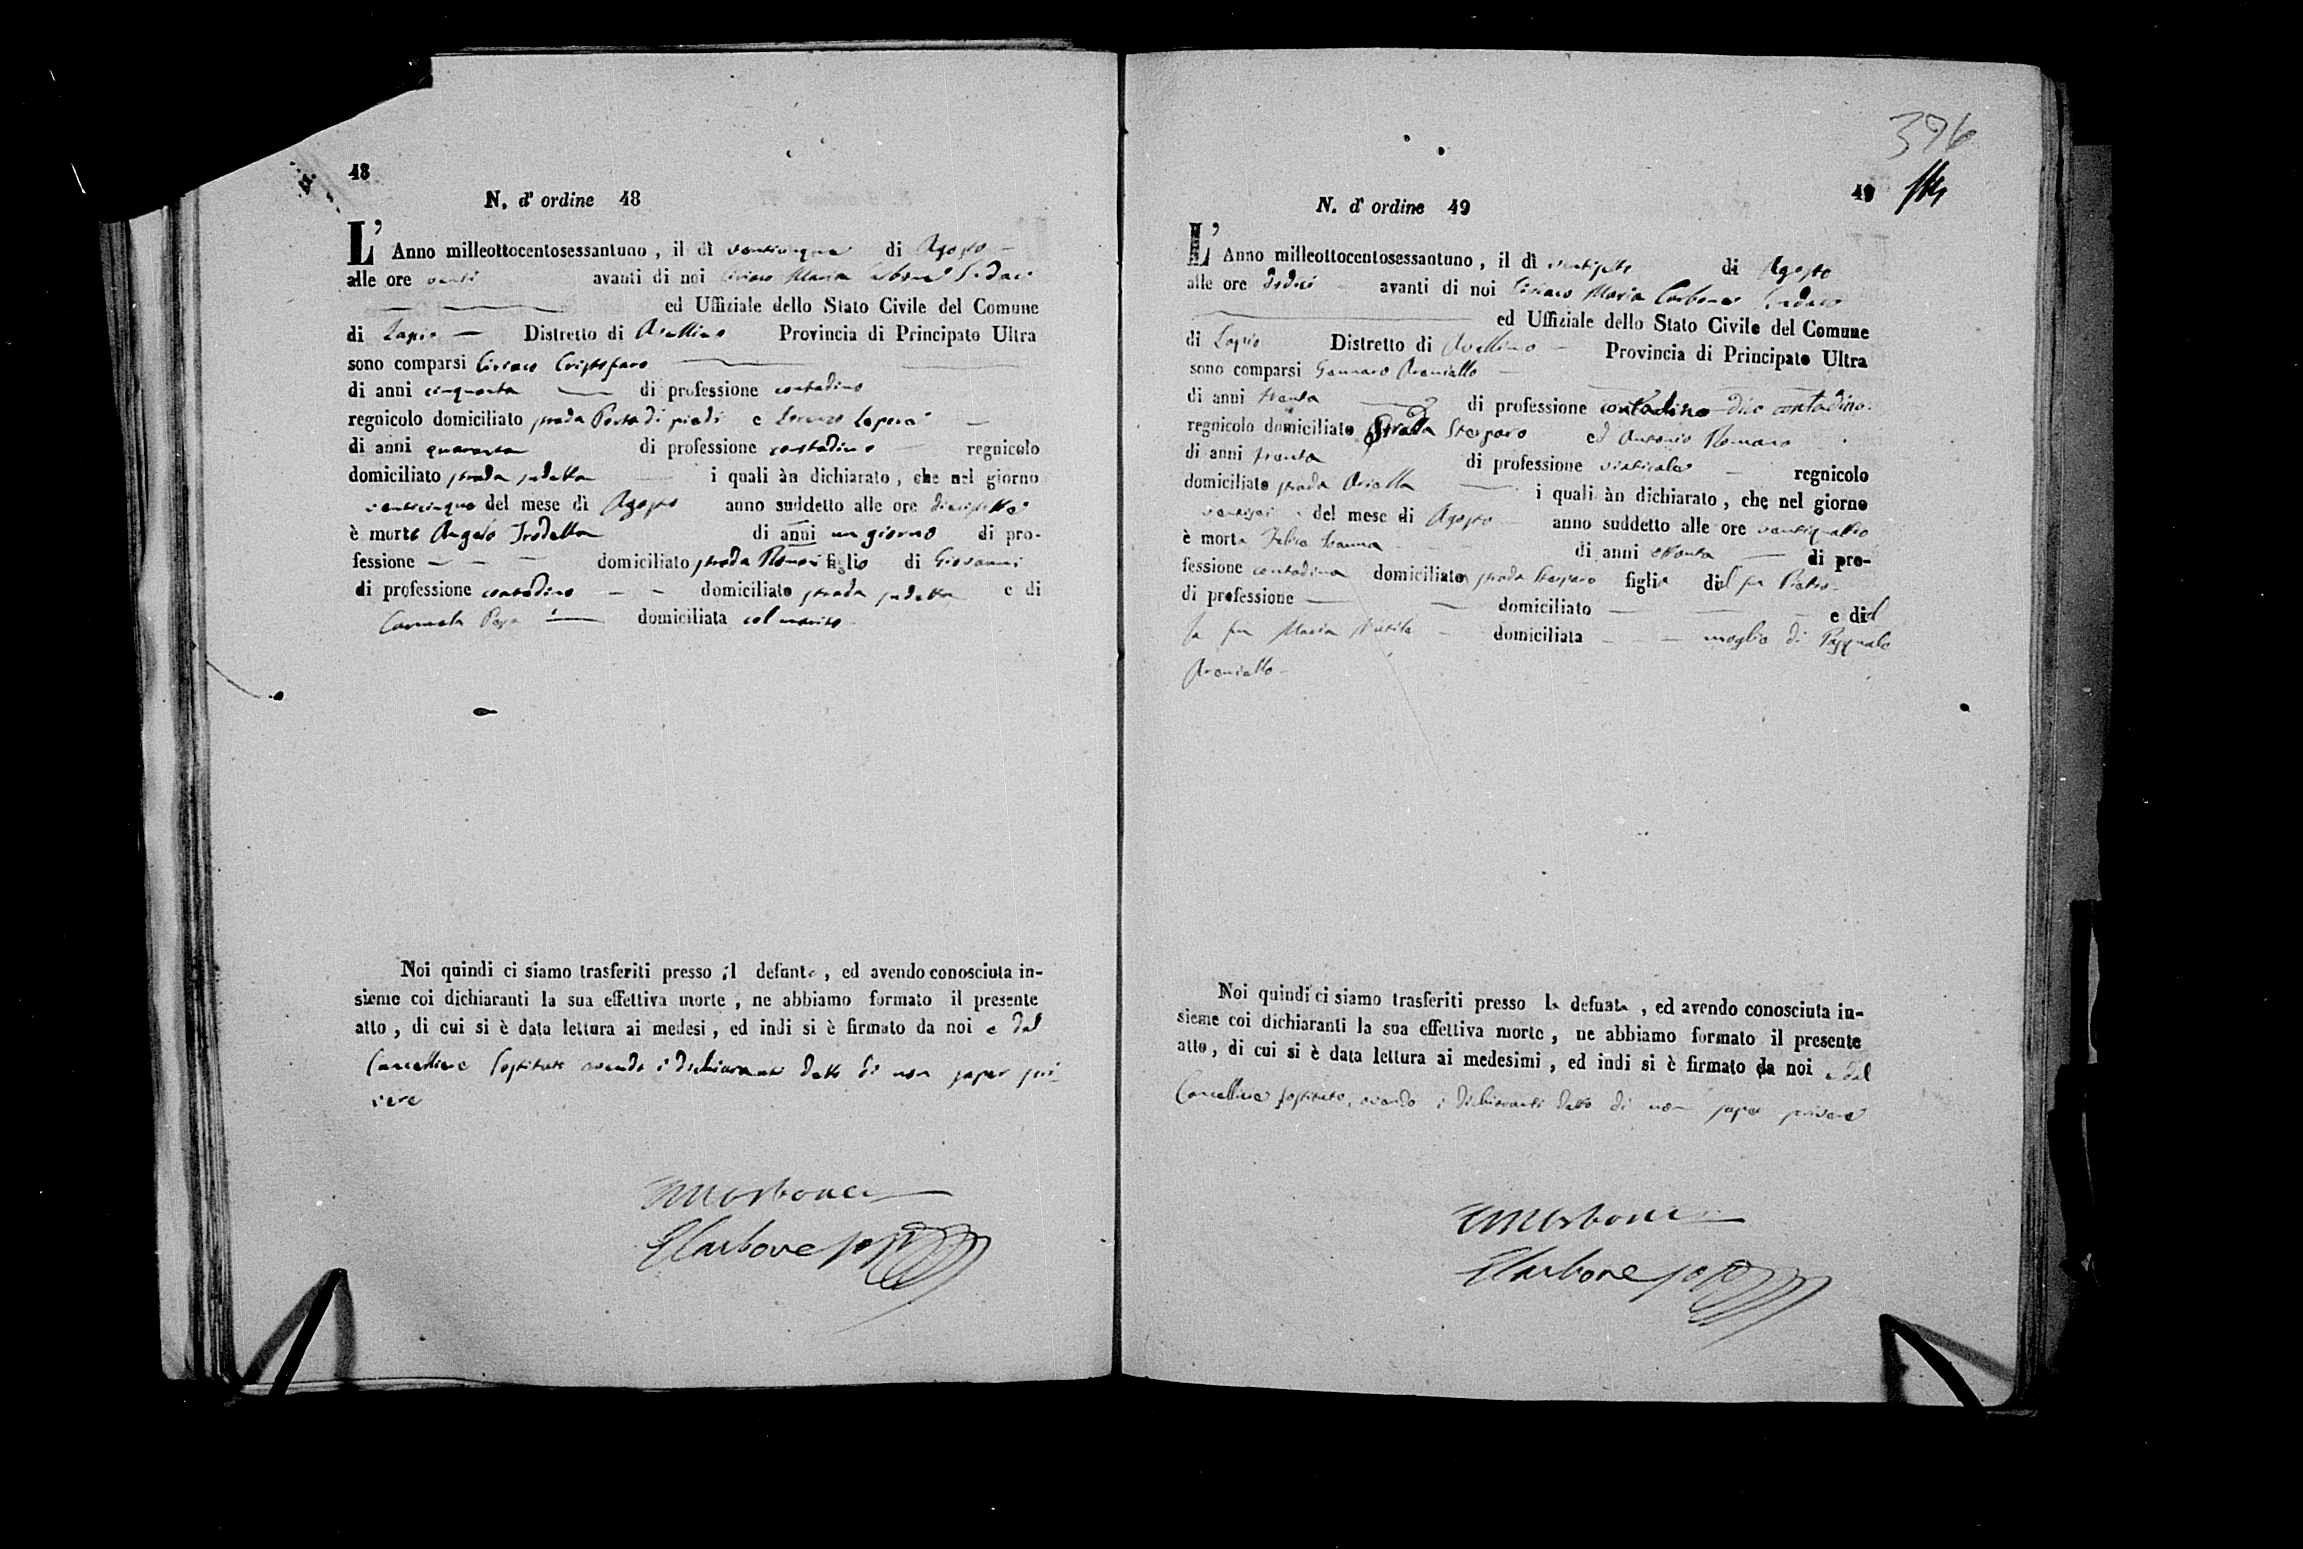 48
N. d' ordine 48
L' Anno milleottocentosessantuno, il dì venticinque di Agosto
alle ore venti avanti di noi Ciriaco Maria Carbone Sindaco
ed Uffiziale dello Stato Civile del Comune
di Lapio Distretto di Avellino Provincia di Principato Ultra
sono comparsi Ciriaco Cristofaro
di anni cinquanta di professione contadino
regnicolo domiciliato strada Porta di piedi e Lorenzo
di anni quaranta di professione contadino regnicolo
domiciliato strada i quali àn dichiarato, che nel giorno
venticinque del mese di Agosto anno suddetto alle ore diecisette
è morto Angelo Trodella di anni un giorno di pro-
fessione domiciliato strada figlio di Giovanni
di professione contadino domiciliato strada e di
Carmela domiciliata col marito
Noi quindi ci siamo trasferiti presso il defunto, ed avendo conosciuta in-
sieme coi dichiaranti la sua effettiva morte, ne abbiamo formato il presente
atto, di cui si è data lettura ai medesi, ed indi si è firmato da noi e dal
Cancelliere Sostituto avendo i dichiaranti detto di non saper scri-
vere
CMCarbone
Carbone
396
49
N. d' ordine 49
L' Anno milleottocentosessantuno, il dì ventisette di Agosto
alle ore dodici avanti di noi Ciriaco Maria Carbone Sindaco
ed Uffiziale dello Stato Civile del Comune
di Lapio Distretto di Avellino Provincia di Principato Ultra
sono comparsi Gennaro Areniello
di anni trenta di professione contadino dico contadino
regnicolo domiciliato Strada Sterparo ed Antonio Romano
di anni trenta di professione regnicolo
domiciliato strada i quali àn dichiarato, che nel giorno
ventisei del mese di Agosto anno suddetto alle ore ventiquattro
è morta di anni ottanta di pro-
fessione contadina domiciliata strada Sterparo figlia del fu Pietro
di professione domiciliato e del
la fu Maria domiciliata moglie di Pasquale
Areniello
Noi quindi ci siamo trasferiti presso la defunta, ed avendo conosciuta in-
sieme coi dichiaranti la sua effettiva morte, ne abbiamo formato il presente
atto, di cui si è data lettura ai medesimi, ed indi si è firmato da noi e dal
Cancelliere sostituto, avendo i dichiaranti detto di non saper scrivere
CMCarbone
Carbone